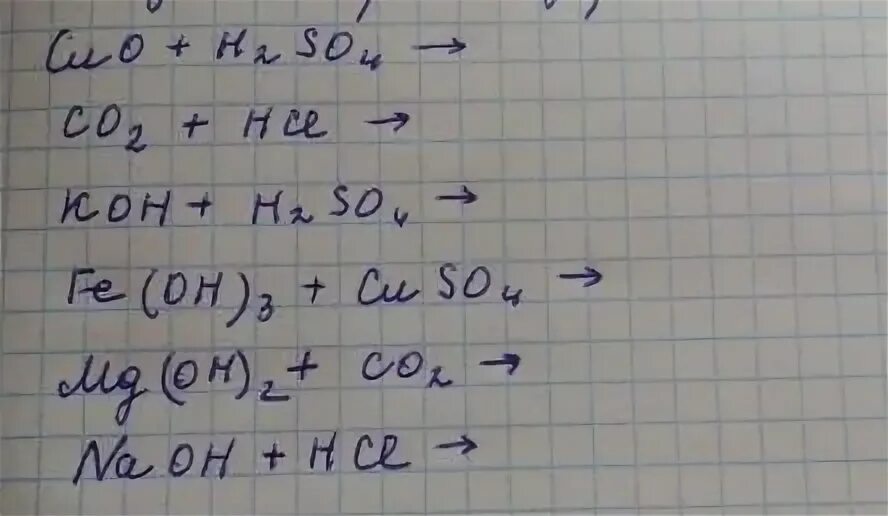 CuO + H₂SO₄ →
CO₂ + HCl →
KOH + H₂SO₄ →
Fe(OH)₃ + CuSO₄ →
Mg(OH)₂ + CO₂ →
NaOH + HCl →